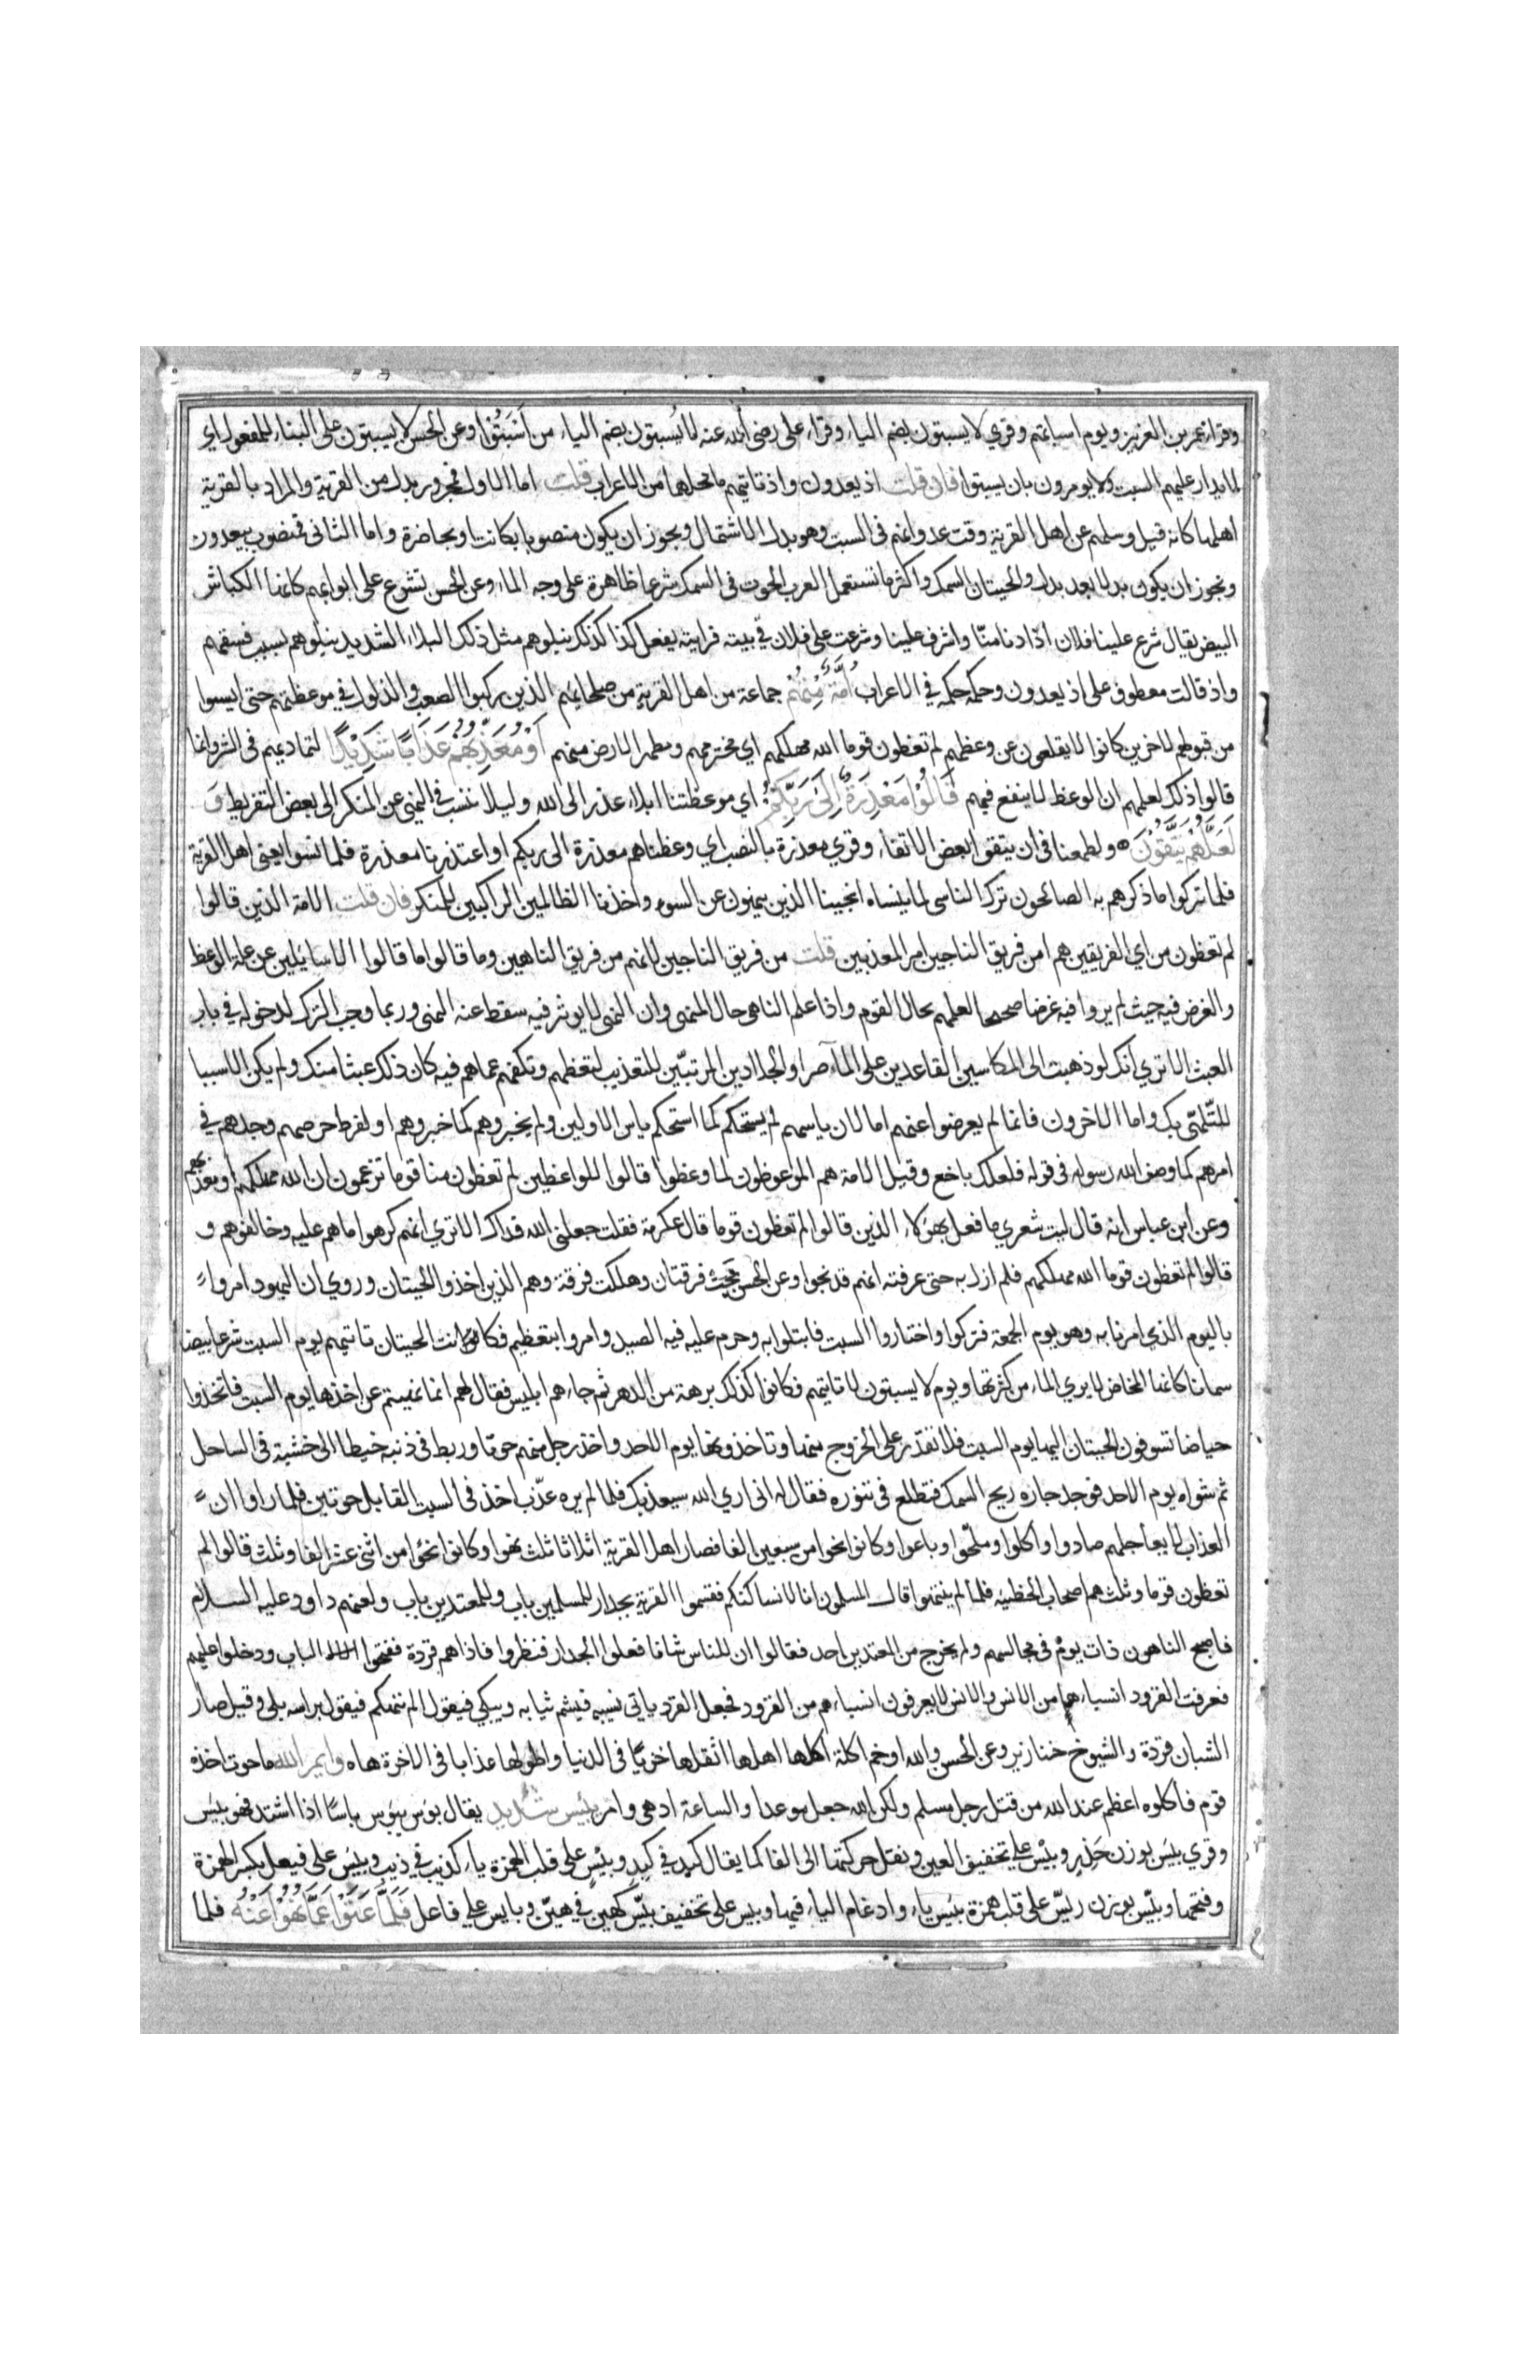 وقراء عمر بن العزيز ويوم اسباتهم وقري لا يسبتون بضم الباء وقراء على رضى الله عنه لا يُسبتون بضم الياء من اَسْبَتُوا وعن الحسن لا يسبتون على البناء للمفعول اي
لا يدار عليهم السبت ولا يومرون بان يسبتوا فان قلت اذ يعدون واذ تاتيهم ما محلها من الاعراب قلت اما الاول فمجرور بدل من القرية والمراد بالقرية
اهلها كانه قيل وسلهم عن اهل القرية وقت عدوانهم فى السبت وهو بدل الاشتمال ويجوز ان يكون منصوبا بكانت او بحاضرة واما الثانى فمنصوب بيعدون
ويجوز ان يكون بدلا بعد بدل والحيتان السمك واكثر ما تستعمل العرب الحوت فى السمك شرعا ظاهرة على وجه الماء وعن الحسن تشرع على ابوابهم كانها الكباش
البيض يقال شرع علينا فلان اذا دنا منّا واشرف علينا وشرعت على فلان في بيته فرايته يفعل كذا كذلك نبلوهم مثل ذلك البلاء الشديد نبلوهم بسبب فسقهم
واذ قالت معطوف على اذ يعدون وحكمه حكمه في الاعراب اُمَّةٌ مِنْهُمْ جماعة من اهل القرية من صلحائهم الذين ركبوا الصعب والذلول في موعظتهم حتى ايسوا
من قبولهم لاخرين كانوا لا يقلعون عن وعظهم لم تعظون قوما الله مهلكهم اي مخترمهم ومطهر الارض منهم اَوْ مُعَذِّبُهُمْ عَذَابًا شَدِيْدًا لتماديهم فى الشر وانما
قالوا ذلك لعلمهم ان الوعظ لا ينفع فيهم قَالُوْا مَعْذِرَةً اِلَىٰ رَبِّكُمْ اي موعظتنا ابلاء عذر الى الله وليلا ننسب في النهي عن المنكر الى بعض التفريط وَ
لَعَلَّهُمْ يَتَّقُوْنَ ولطمعنا فى ان يتقوا بعض الاتقاء وقري معذرة بالنصب اي وعظناهم معذرة الى ربكم او اعتذرنا معذرة فلما نسوا يعنى اهل القرية
فلما تركوا ما ذكرهم به الصالحون ترك الناسى لما ينساه انجينا الذين ينهون عن السوء واخذنا الظالمين الراكبين للمنكر فان قلت الامة الذين قالوا
لم تعظون من اي الفريقين هم امن فريق الناجين ام المعذبين قلت من فريق الناجين لانهم من فريق الناهين وما قالوا ما قالوا الا سائلين عن علة الوعظ
والغرض فيه حيث لم يروا فيه غرضا صحيحا لعلمهم بحال القوم واذا علم الناهى حال المنهى وان النهى لا يوثر فيه سقط عنه النهى وربما وجب الترك لدخوله في باب
العبث الا تري انك لو ذهبت الى المكاسين القاعدين على المآصر او الجلادين المرتبّين للتعذيب لتعظهم وتكفهم عما هم فيه كان ذلك عبثا منك ولم يكن الا سببا
للتّلهّى بك واما الاخرون فانما لم يعرضوا عنهم اما لان ياسهم لم يستحكم كما استحكم ياس الاولين ولم يخبروهم كما خبروهم او لفرط حرصهم وجدهم في
امرهم كما وصف الله رسوله فى قوله فلعلك باخع وقيل الامة هم الموعوظون لما وعظوا قالوا للواعظين لم تعظون منا قوما تزعمون ان الله مهلكهم او معذبهم
وعن ابن عباس انه قال ليت شعري ما فعل بهؤلاء الذين قالوا لم تعظون قوما قال عكرمة فقلت جعلنى الله فداك الا تري انهم كرهوا ما هم عليه وخالفوهم و
قالوا لم تعظون قوما الله مهلكهم فلم ازل به حتى عرفته انهم قد نجوا وعن الحسن نجت فرقتان وهلكت فرقة وهم الذين اخذوا الحيتان وروي ان اليهود امروا
باليوم الذي امرنا به وهو يوم الجمعة فتركوا واختاروا السبت فابتلوا به وحرم عليه فيه الصيد وامروا بتعظيم فكانت الحيتان تاتيهم يوم السبت شرعا بيضا
سمانا كانها المخاض لا يري الماء من كثرتها ويوم لا يسبتون لا تاتيهم فكانوا كذلك برهة من الدهر ثم جاءهم ابليس فقال لهم انما نهيتم عن اخذها يوم السبت فاتخذوا
حياضا تسوقون الحيتان اليها يوم السبت فلا تقدر على الخروج منها وتاخذونها يوم الاحد واخذ رجل منهم حوتا وربط فى ذنبه خيطا الى خشبة فى الساحل
ثم شواه يوم الاحد فوجد جاره ريح السمك فتطلع فى تنوره فقال له انى اري الله سيعذبك فلما لم يره عذّب اخذ فى السبت القابل حوتين فلما راوا ان
العذاب لا يعاجلهم صادوا واكلوا وملّحوا وباعوا وكانوا نحوا من سبعين الفا فصار اهل القرية اثلاثا ثلث نهوا وكانوا نحوا من اثنى عشر الفا وثلث قالوا لم
تعظون قوما وثلث هم اصحاب الخطيئه فلما لم ينتهوا قال المسلمون انا لا نساكنكم فقسموا القرية بجدار للمسلمين باب وللمعتدين باب ولعنهم داود عليه السلام
فاصبح الناهون ذات يوم فى مجالسهم ولم يخرج من المعتدين احد فقالوا ان للناس شانا فعلوا الجدار فنظروا فاذا هم قردة ففتحوا الباب ودخلوا عليهم
فعرفت القرود انسباءهم من الانس والانس لا يعرفون انسباءهم من القرود فجعل القرد ياتي نسيبه فيشم ثيابه ويبكي فيقول الم ننهكم فيقول براسه بلى وقيل صار
الشبان قردة والشيوخ خنازير وعن الحسن والله اوخم اكلة اكلها اهلها اثقلها خزيًا فى الدنيا واطولها عذابا فى الاخرة هاه وايم الله ما حوت اخذه
قوم فاكلوه اعظم عند الله من قتل رجل مسلم ولكن الله جعل موعدا والساعة ادهى وامر بئيس شديد يقال بؤس يبؤس باسًا اذا اشتد فهو بئيس
وقري بئس بوزن حَذِرٍ وبئس علي تخفيف العين ونقل حركتها الى الفا كما يقال كبد في كبد وبيس على قلب الهمزة ياء كذيب في ذئب وبيئس على فيعل بكسر الهمزة
وفتحها وبيّس بوزن ريّس على قلب همزة بئيس ياء وادغام الياء فيها وبيس على تخفيف بيّس كهين في هيّن وبايس على فاعل فَلَمَّا عَتَوْا عَمَّا نُهُوْا عَنْهُ فلما